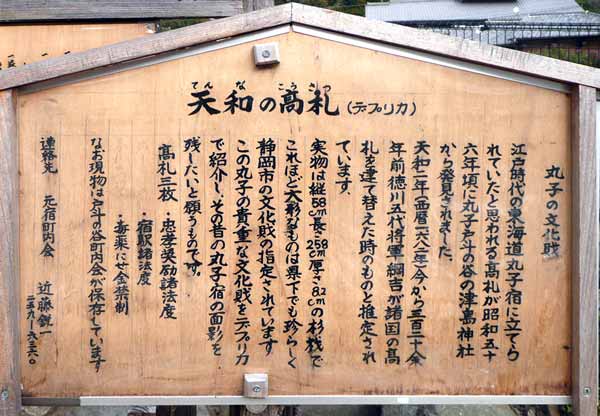 天和の高札(デプリカ)
てんな こうさつ
丸子の文化財
江戸時代の東海道丸子宿に立てら
れていたと思われる高札が昭和五十
六年頃に丸子戸斗の谷の津島神社
から発見されました。
天和二年(西暦一六八二年)今から三百二十余
年前徳川五代将軍綱吉が諸国の高
札を建て替えた時のものと推定され
ています。
実物は縦58cm長さ258cm厚さ8.2cmの杉桟で
これほど大形なものは県下でも珍らしく
静岡市の文化財の指定されています
この丸子の貴重な文化財をデプリカ
で紹介し、その昔の丸子宿の面影を
残したいと願うものです。
高札三枚・忠孝奨励諸法度
・宿駅諸法度
・毒薬にせ金禁制
なお現物は戸斗の谷町内会が保存しています
連絡先 元宿町内会 近藤鋭一
二五九-六三六〇